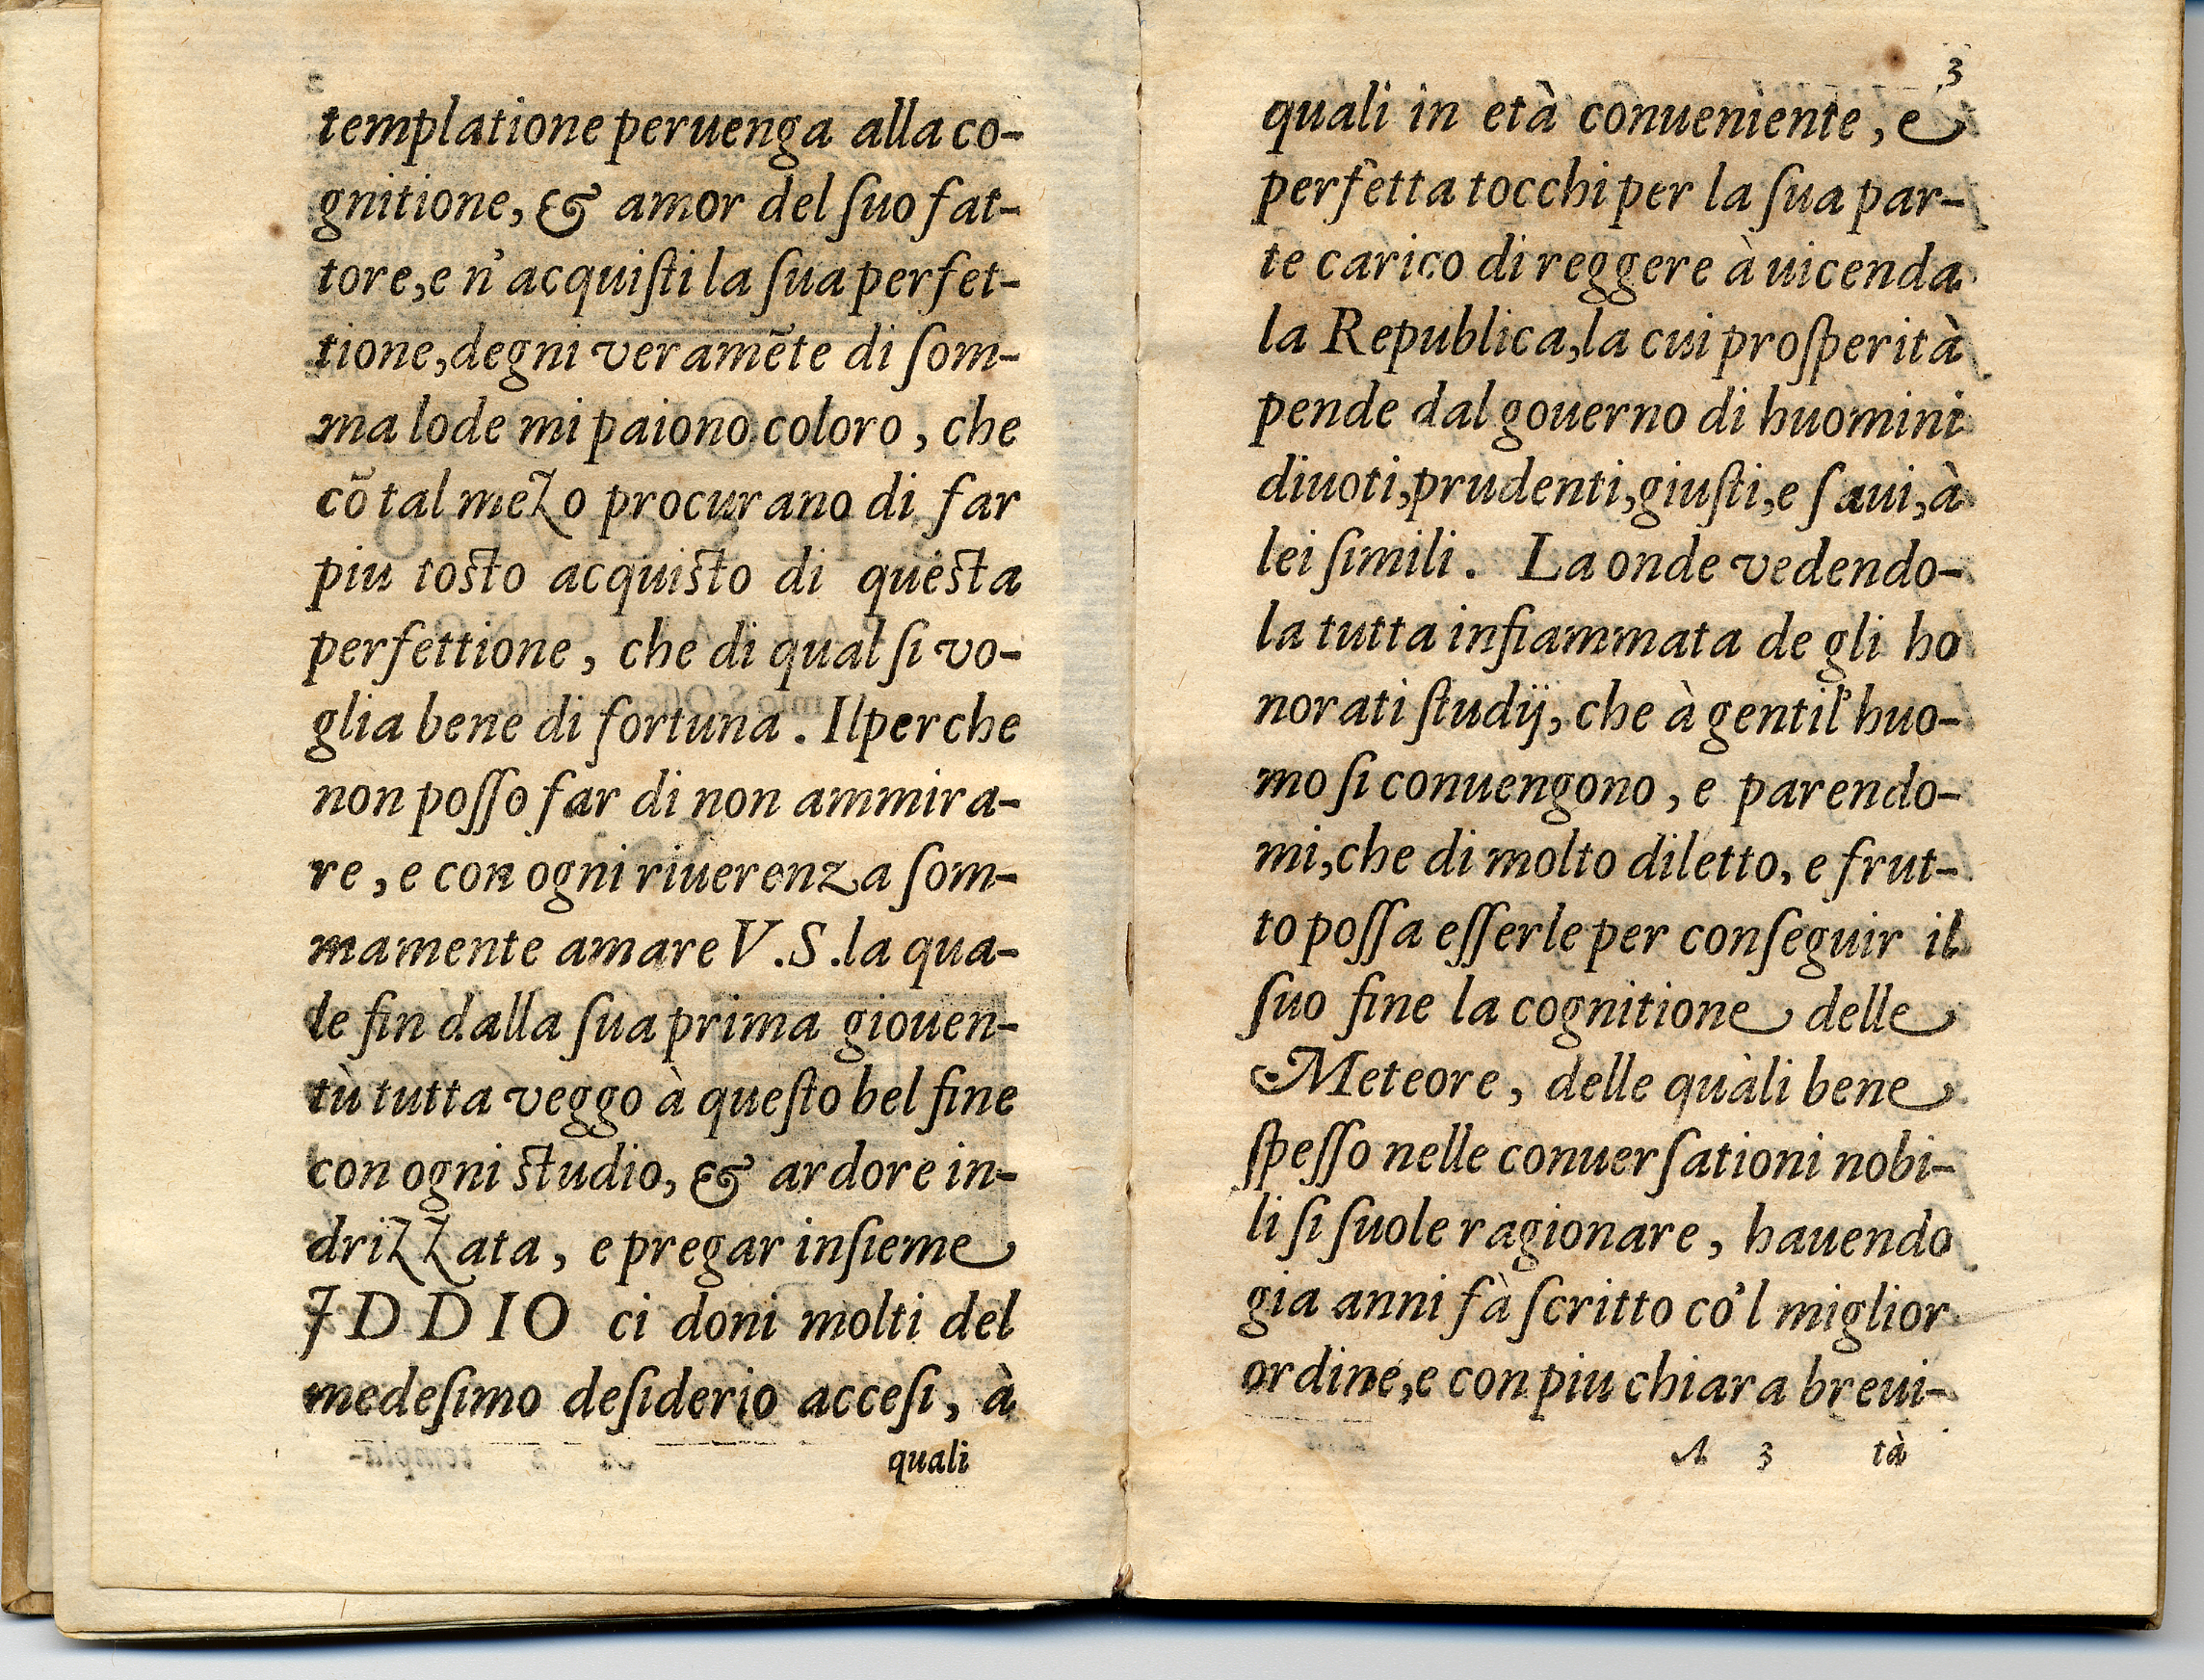 templatione peruenga alla co-
gnitione, & amor del ſuo fat-
tore, e n'acquiſti la ſua perfet-
tione, degni veramẽte di ſom-
ma lode mi paiono coloro, che
cõ tal mezo procurano di far
piu toſto acquiſto di queſta
perfettione, che di qual ſi vo-
glia bene di fortuna. Ilperche
non poſſo far di non ammira-
re, e con ogni riuerenza ſom-
mamente amare V.S. la qua-
le fin dalla ſua prima giouen-
tù tutta veggo à queſto bel fine
con ogni ſtudio, & ardore in-
drizzata, e pregar inſieme
IDDIO ci doni molti del
medeſimo deſiderio acceſi, à
quali
3
quali in età conueniente, e
perfetta tocchi per la ſua par-
te carico di reggere à uicenda
la Republica, la cui proſperità
pende dal gouerno di huomini
diuoti, prudenti, giuſti, e ſaui, à
lei ſimili. La onde vedendo-
la tutta infiammata de gli ho
norati ſtudij, che à gentil'huo-
mo ſi conuengono, e parendo-
mi, che di molto diletto, e frut-
to poſſa eſſerle per conſeguir il
ſuo fine la cognitione delle
Meteore, delle quali bene
ſpeſſo nelle conuerſationi nobi-
li ſi ſuole ragionare, hauendo
gia anni fà ſcritto co'l miglior
ordine, e con piu chiara breui-
A 3 tà